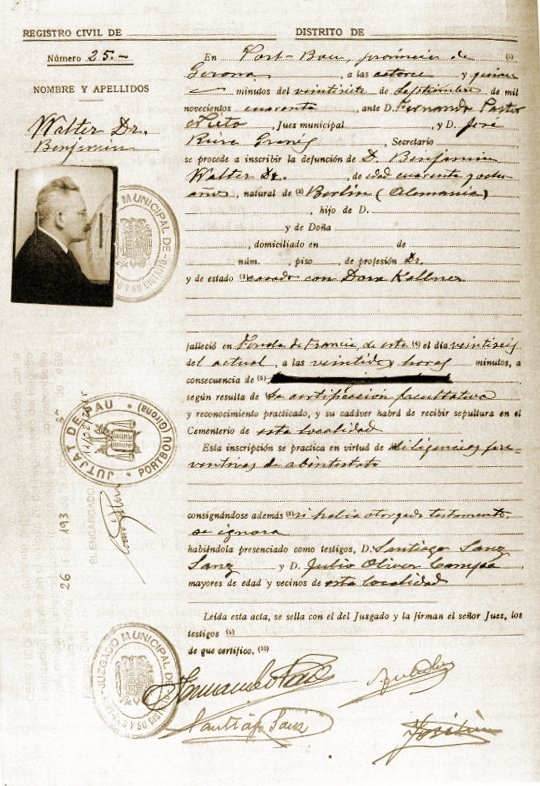 REGISTRO CIVIL DE
DISTRITO DE
Número 25.-
NOMBRE Y APELLIDOS
Walter Dr.
Benjamin
En Port-Bou, provincia de (1)
Gerona, a las catorce y quince
minutos del veintisiete de Septiembre de mil
novecientos cuarenta, ante D. Fernando Pastor
Nieto, Juez municipal, y D. José
, Secretario
se procede a inscribir la defunción de D. Benjamin
Walter Dr., de edad cuarenta y ocho
años, natural de (2) Berlin (Alemania)
, hijo de D.
y de Doña
, domiciliado en de
núm. , piso , de profesión Dr.
y de estado (3) casado con Dora Kellner
falleció en Fonda de Francia, de esta (4) el día veintiseis
del actual, a las veintidos y horas minutos, a
consecuencia de (5)
según resulta de la certificación facultativa
y reconocimiento practicado, y su cadáver habrá de recibir sepultura en el
Cementerio de esta localidad
Esta inscripción se practica en virtud de diligencias pre-
ventivas de abintestato
consignándose además (8) si había otorgado testamento,
se ignora
habiéndola presenciado como testigos, D. Santiago Sanz
Sanz y D. Julio Oliver Campa
mayores de edad y vecinos de esta localidad
Leída esta acta, se sella con el del Juzgado y la firman el señor Juez, los
testigos (9)
de que certifico. (10)
Santiago Sanz
JUTJAT DE PAU
PORTBOU (Girona)
EL ENCARGADO
26 193
JUZGADO MUNICIPAL DE
Y SU DISTRITO